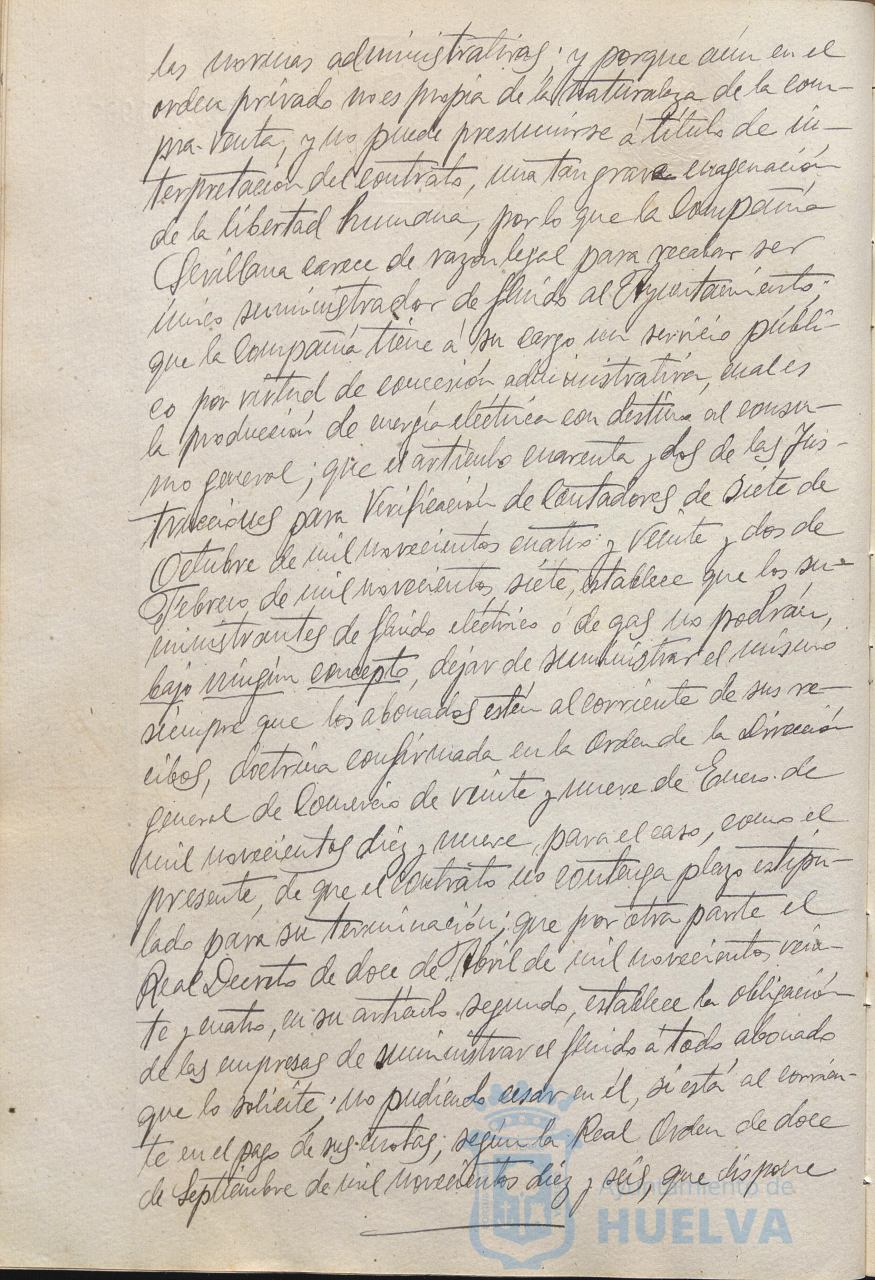 las normas administrativas; y porque aún en el
orden privado no es propia de la naturaleza de la com-
pra-venta, y no puede presumirse á título de in-
terpretación del contrato, una tan grave enagenación
de la libertad humana, por lo que la Compañia
Sevillana carece de razon legal para recabar ser
único suministrador de fluido al Ayuntamiento;
que la Compañia tiene á su cargo un servicio públi-
co por virtud de concesión administrativa, cual es
la producción de energía eléctrica con destino al consu-
mo general; que el artículo cuarenta y dos de las Ins-
trucciones para Verificación de Contadores de siete de
Octubre de mil novecientos cuatro y veinte y dos de
Febrero de mil novecientos siete, establece que los su-
ministrantes de fluido eléctrico ó de gas no podrán,
bajo ningún concepto, dejar de suministrar el mismo
siempre que los abonados estén al corriente de sus re-
cibos, doctrina confirmada en la Orden de la Dirección
general de Comercio de veinte y nueve de Enero de
mil novecientos diez y nueve, para el caso, como el
presente, de que el contrato no contenga plazo estipu-
lado para su terminación; que por otra parte el
Real Decreto de doce de Abril de mil novecientos vein-
te y cuatro, en su artículo segundo, establece la obligación
de las empresas de suministrar el fluido á todo abonado
que lo solicite; no pudiendo cesar en él, si está al corrien-
te en el pago de sus cuotas; según la Real Orden de doce
de Septiembre de mil novecientos diez y seis, que dispone
Ayuntamiento de
HUELVA